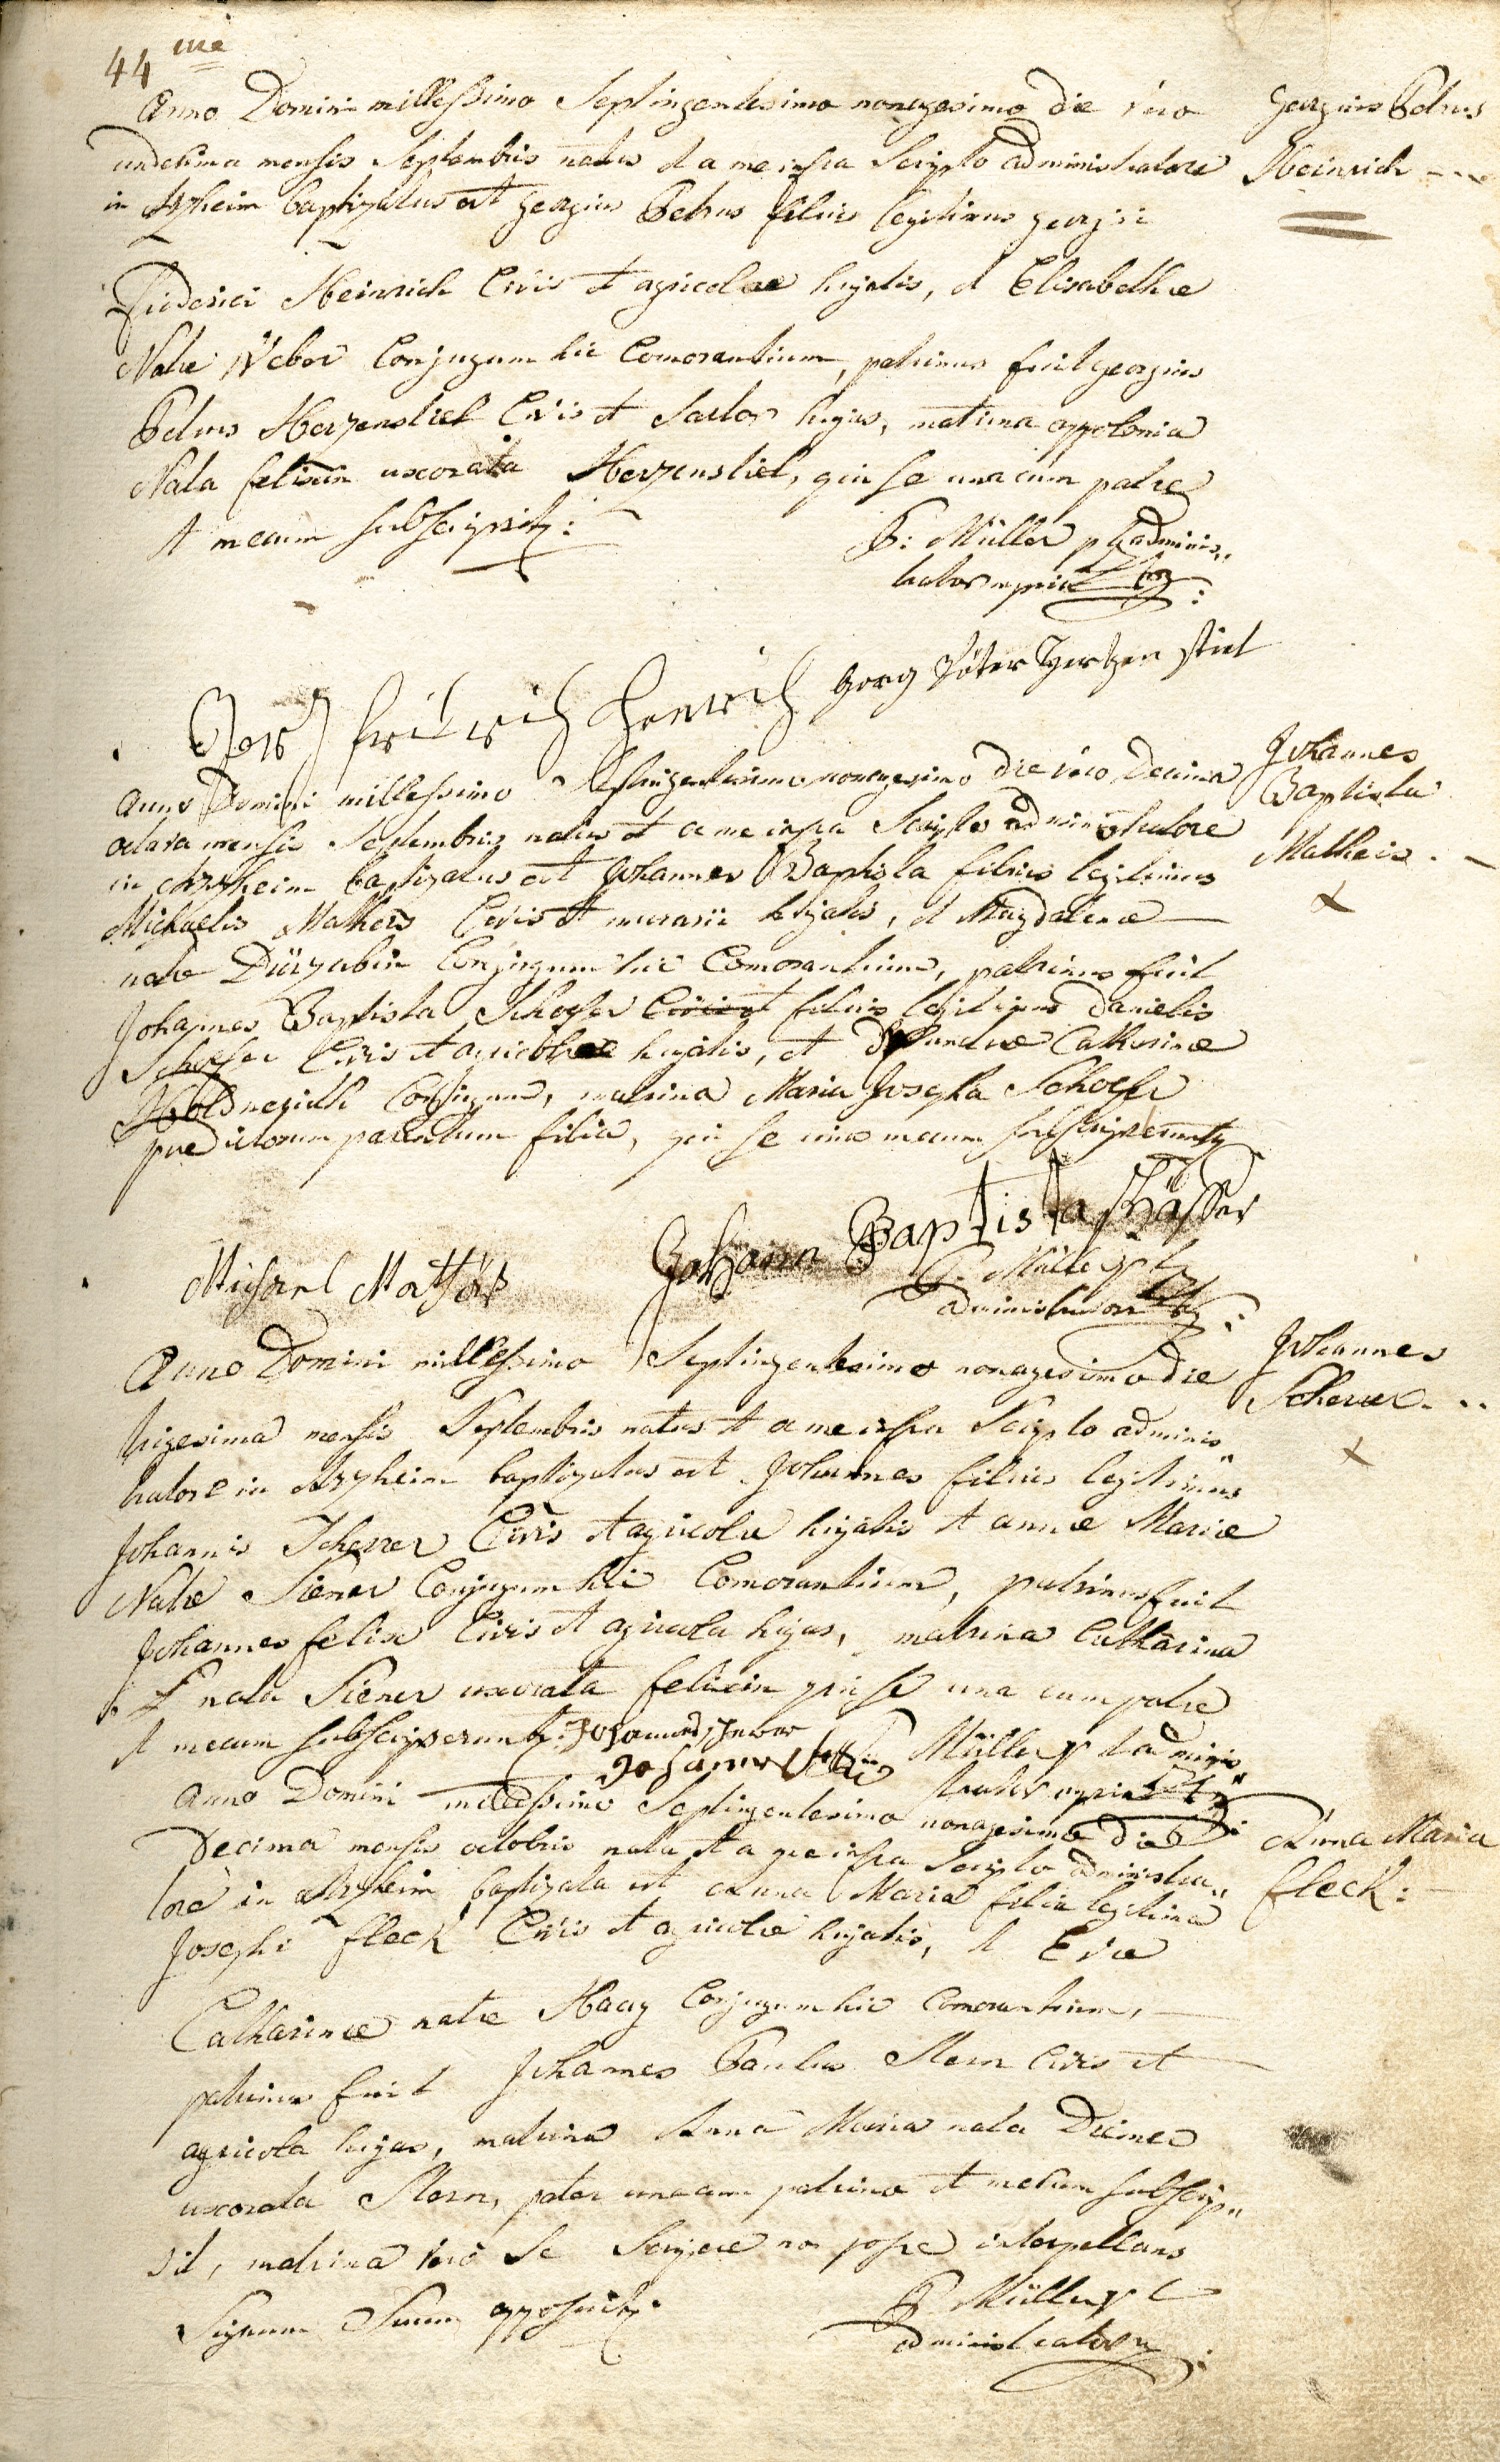 44 me
Anno Domini millessimo Septingentesimo nonagesimo die vero
undecima mensis Septembris natus et a me infra Scripto administratore
in Arzheim baptizatus est Georgius Petrus filius legitimus Georgii
Friderici Heinrich Civis et agricolae hujatis, et Elisabethae
Natae Weber Conjugum hic Comorantium, patrinus fuit Georgius
Petrus Herzenstiel Civis et Sartor hujas, matrina Appolonia
Nata felixin uxorata Herzenstiel, qui se una cum patre
et mecum subscripsit:
P: Müller pt adminis„
trator mppria
Georgius Petrus
Heinrich
Georg fridrich Henrich Georg Péter Hertzen stiel
Anno Domini millessimo Septingentesimo nonagesimo die vero Decima
octava mensis Septembris natus et a me infra Scripto administratore
in Arzheim baptizatus est Johannes Baptista filius legitimus
Michaelis Matheis Civis et murarii hujatis, et Magdalenae
natae Dürzabin Conjugum hic Comorantium, patrinus fuit
Johannes Baptista Schoefer filius legitimus Danielis
Schoefer Civis et agricolae hujatis, et defunctae Catharinae
Conjugum, matrina Maria Josepha Schoefer
praedictorum parentum filia, qui se una mecum subscripserunt
Johannes
Baptista
Matheis
Michael Mathäs Johann Baptista schäffer
P. Müller pt
administrator
Anno Domini millessimo Septingentesimo nonagesimo die
trigesima mensis Septembris natus et a me infra Scripto adminis„
tratore in Arzheim baptizatus est Johannes filius legitimus
Johannis Scherrer Civis et agricolae hujatis et annae Mariae
Natae Siener Conjugum hic Comorantium, patrinus fuit
Johannes felix Civis et agricola hujas, matrina Catharina
nata Siener uxorata felixin qui se una cum patre
et mecum subscripserunt: Johannes scherer
Johannes
P Müller pt adminis„
trator mppria
Johannes
Scherrer
Anno Domini millessimo Septingentesimo nonagesimo die
Decima mensis octobris nata et a me infra Scripto administra„
tore in Arzheim baptizata est Anna Maria filia legitima
Josephi fleck Civis et agricolae hujatis, et Evae
Catharinae natae Haag Conjugum hic Comorantium,
patrinus fuit Johannes Paulus Stern Civis et
agricola hujas, matrina Anna Maria nata Diener
uxorata Stern, pater una cum patrino et mecum subscrip„
sit, matrina vero se Scribere non posse interpellans
Signum Suum apposuit:
P Müller pt
administrator
Anna Maria
fleck: